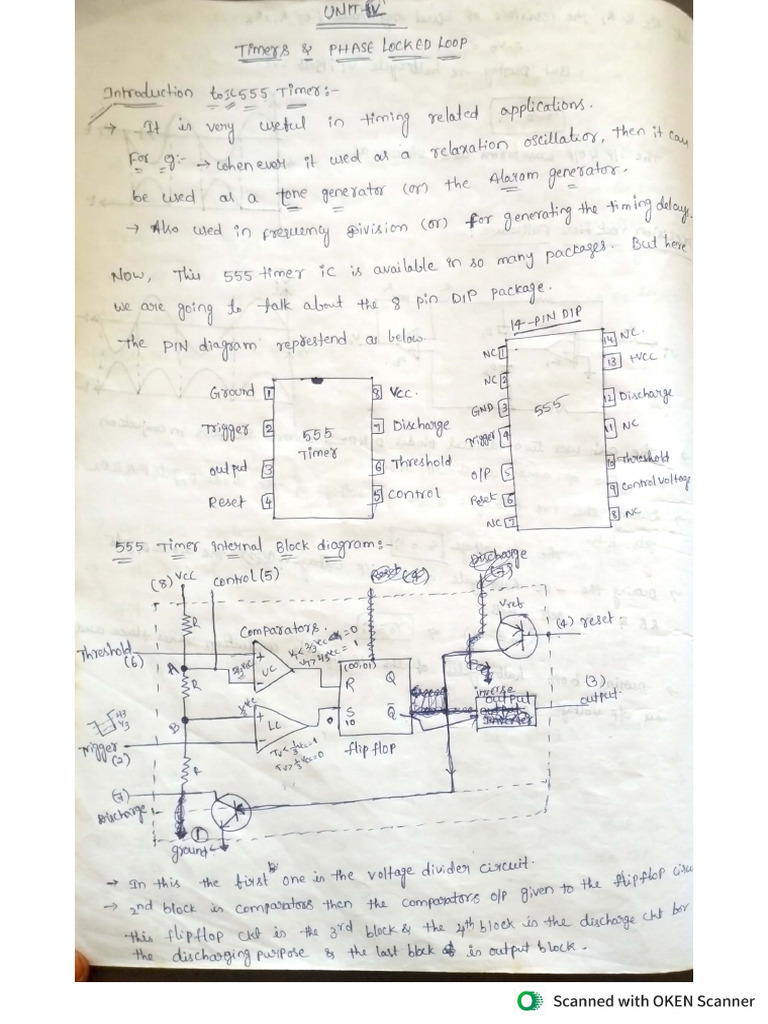 UNIT-IV
Timers & PHASE LOCKED LOOP
Introduction to IC555 Timer:-
→ It is very useful in timing related applications.
For eg:- → when ever it used as a relaxation oscillator, then it can
be used as a tone generator (or) the Alaram generator.
→ Also used in frequency Division (or) for generating the timing delays.
Now, This 555 timer IC is available in so many packages. But here
we are going to talk about the 8 pin DIP package.
The PIN diagram represtend as below.
14-PIN DIP
Ground 1
Trigger 2
output 3
Reset 4
555
Timer
8 Vcc.
7 Discharge
6 Threshold
5 control
NC 1
NC 2
GND 3
Trigger 4
O/P 5
Reset 6
NC 7
555
14 NC.
13 +VCC
12 Discharge
11 NC
10 Threshold
9 control voltage
8 NC
555 Timer Internal Block diagram:-
Discharge
(7)
(8) Vcc
control(5)
Reset (4)
Vref
(4) reset
Comparators.
Threshold
(6)
R
A
2/3 Vcc
+
-
UC
(00,01)
R
Q
S
10
Q̅
flip flop
inverse
output
(3)
output
R
B
1/3 Vcc
+
-
LC
Trigger
(2)
R
(7)
Discharge
1
ground
→ In this the first one is the voltage divider circuit.
→ 2nd block is comparators then the comparators o/p given to the flipflop
this flipflop ckt is the 3rd block & the 4th block is the discharge ckt for
the discharging purpose & the last block is output block.
Scanned with OKEN Scanner